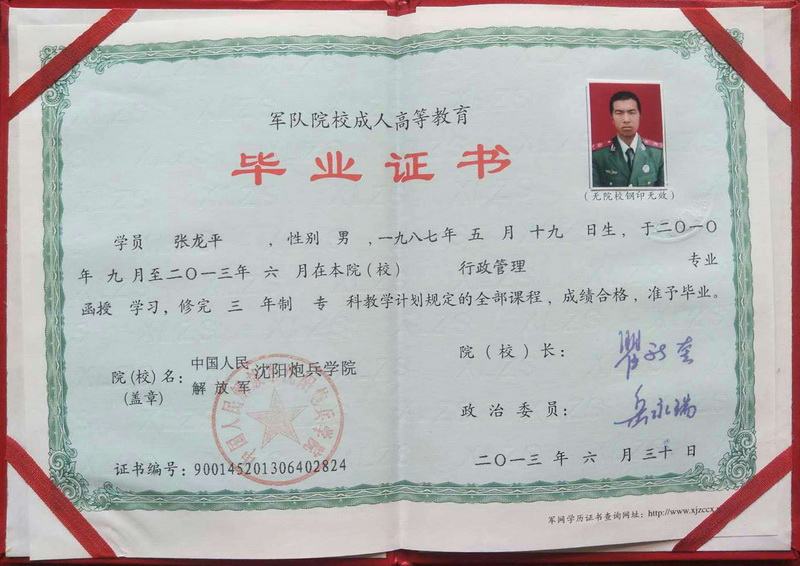 军队院校成人高等教育
毕业证书
(无院校钢印无效)
学员 张龙平 ，性别 男 ，一九八七年 五 月 十九 日生，于二〇一〇
年 九 月至二〇一三年 六 月在本院(校) 行政管理 专业
函授 学习，修完 三 年制 专 科教学计划规定的全部课程，成绩合格，准予毕业。
院(校)名：中国人民解放军 沈阳炮兵学院
(盖章)
中国人民解放军沈阳炮兵学院
证书编号：900145201306402824
院(校)长：
政治委员：岳永瑞
二〇一三 年 六 月 三十 日
军网学历证书查询网址：http://www.xjzccx.